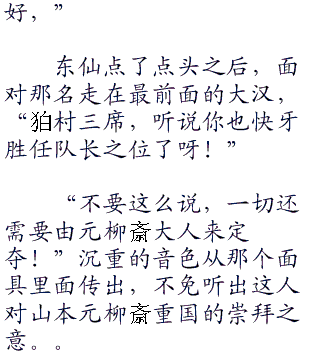 好，”
东仙点了点头之后，面
对那名走在最前面的大汉，
“狛村三席，听说你也快牙
胜任队长之位了呀！”
“不要这么说，一切还
需要由元柳斎大人来定
夺！”沉重的音色从那个面
具里面传出，不免听出这人
对山本元柳斎重国的崇拜之
意。。